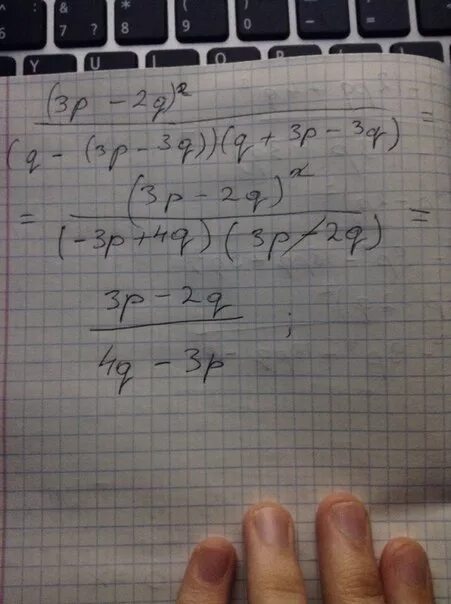 ^ 6 & 7 ? * 8 ( 9 ) 0 - + =
Y U I O P
(3p - 2q)²
(q - (3p - 3q))(q + 3p - 3q) =
= (3p - 2q)²
(-3p + 4q) (3p - 2q) =
3p - 2q
4q - 3p ;